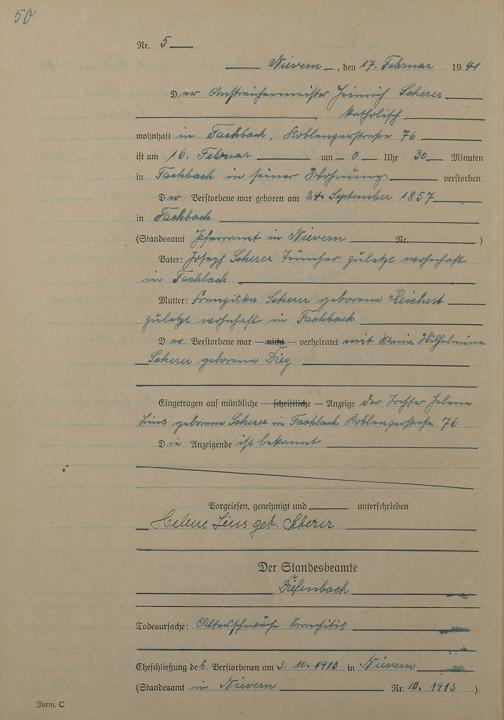 50
Nr. 5
Nievern, den 17. Februar 1941
Der Anstreichermeister Heinrich Scherer
katholisch
wohnhaft in Fachbach, Koblenzerstraße 76
ist am 16. Februar um 0 Uhr 30 Minuten
in Fachbach in seiner Wohnung verstorben.
Der Verstorbene war geboren am 24. September 1857
in Fachbach
(Standesamt Pfarramt in Nievern Nr. )
Vater: Joseph Scherer Tüncher zuletzt wohnhaft
in Fachbach
Mutter: Franziska Scherer geborene Reichert
zuletzt wohnhaft in Fachbach
Der Verstorbene war — nicht — verheiratet mit Maria Wilhelmine
Scherer geborene
Eingetragen auf mündliche — schriftliche — Anzeige der Tochter Helene
geborene Scherer in Fachbach Koblenzerstraße 76
Die Anzeigende ist bekannt
Vorgelesen, genehmigt und unterschrieben
Helene geb. Scherer
Der Standesbeamte
Diefenbach
Todesursache: Altersschwäche Bronchitis
Eheschließung des Verstorbenen am 3. 10. 1913 in Nievern
(Standesamt in Nievern Nr. 10. 1913 ).
Form. C